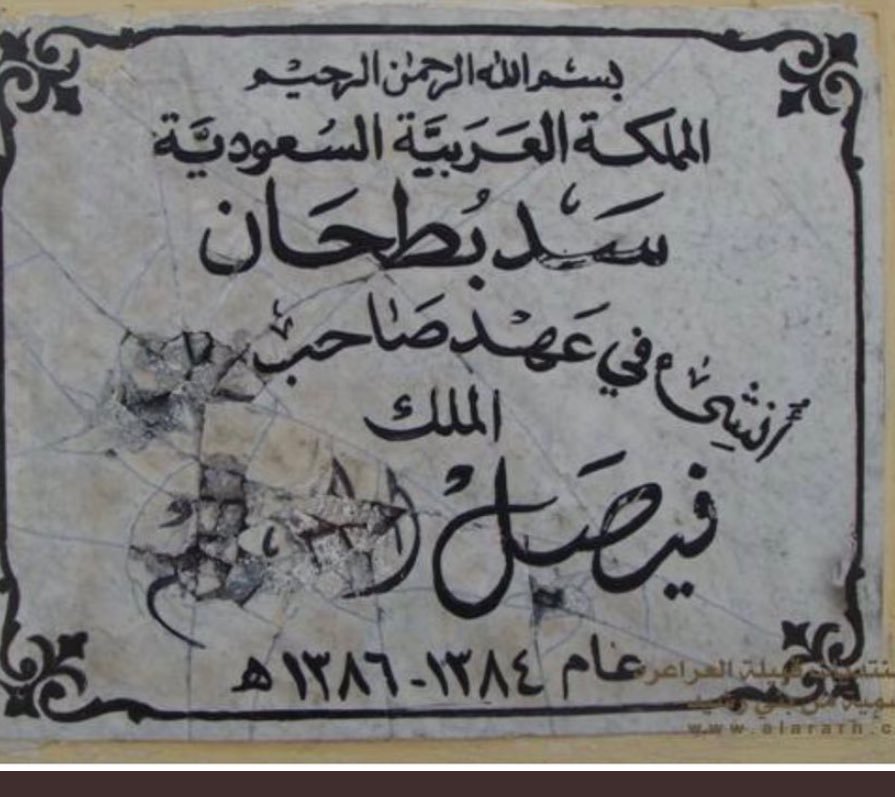 بسم الله الرحمن الرحيم
المملكة العربية السعودية
سد بطحان
أنشئ في عهد صاحب
الملك
فيصل
عام ١٣٨٤-١٣٨٦ هـ
قبيلة العراعرة
www.alarath.c